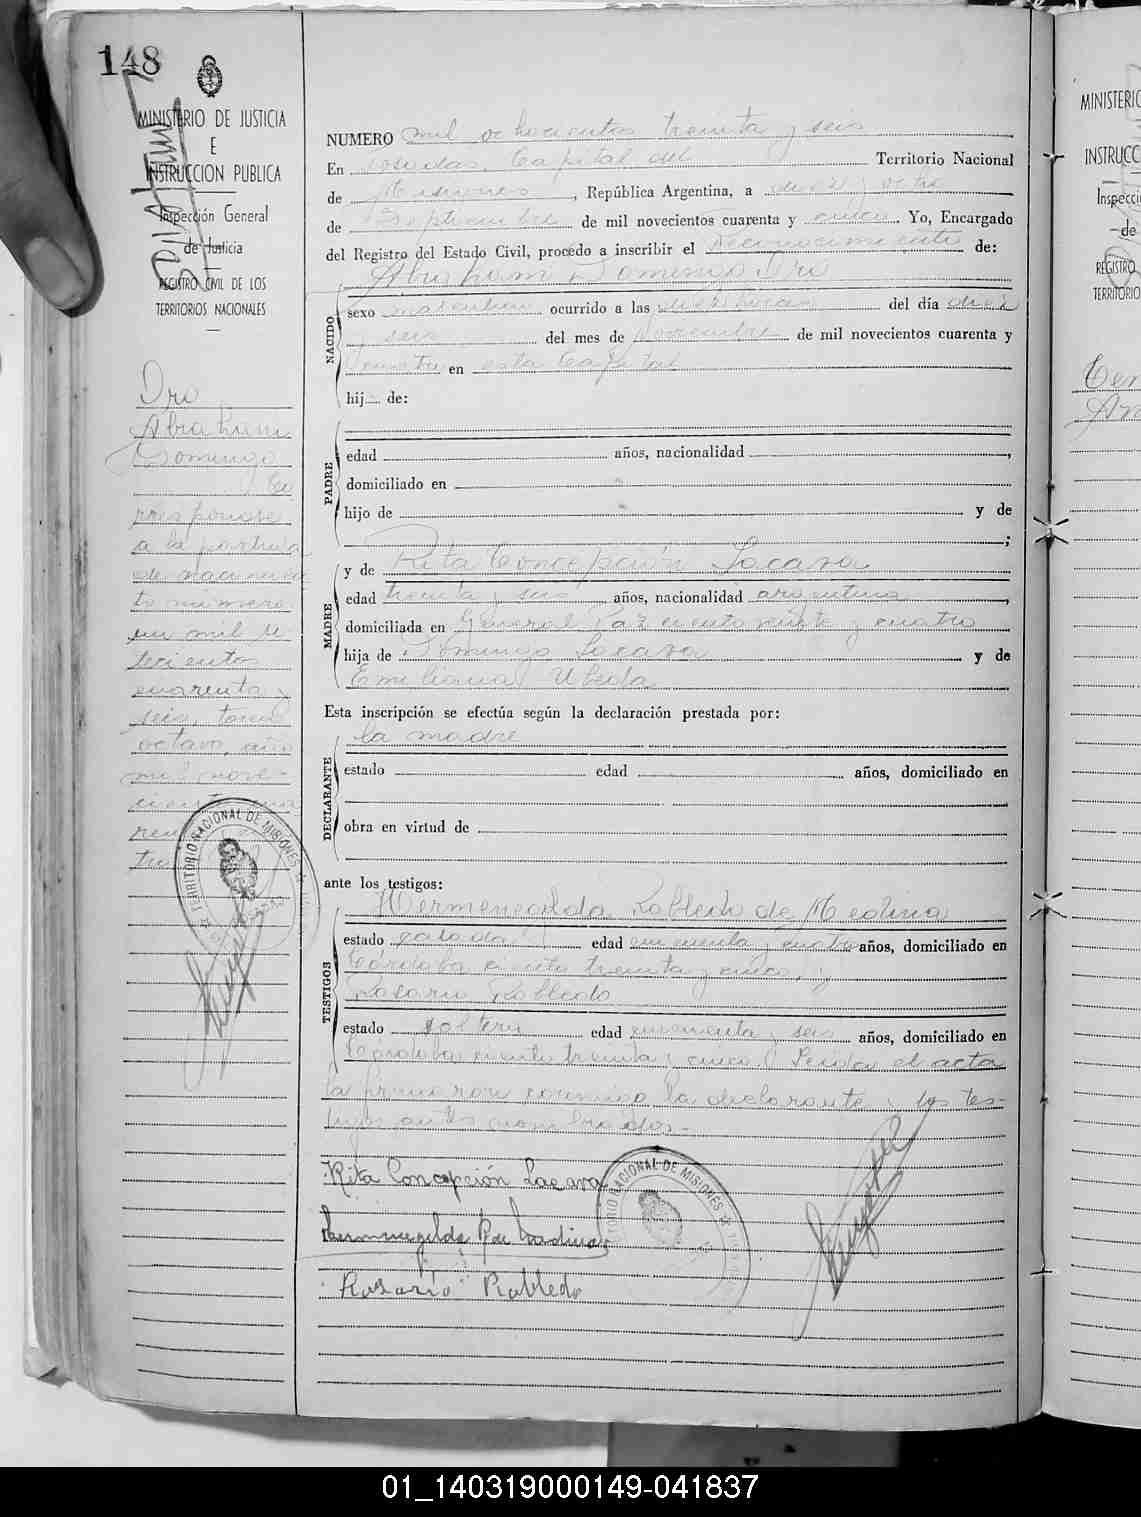 148
MINISTERIO DE JUSTICIA
E
INSTRUCCION PUBLICA
Inspección General
de Justicia
REGISTRO CIVIL DE LOS
TERRITORIOS NACIONALES
Oro
Abraham
Domingo
Co
rresponde
a la partida
de nacimien
to número
un mil
cientos
cuarenta y
seis, tomo
octavo, año
mil nove-
cientos
TERRITORIO NACIONAL DE MISIONES
NUMERO mil ochocientos treinta y seis
En Posadas, Capital del Territorio Nacional
de Misiones, República Argentina, a diez y ocho
de Septiembre de mil novecientos cuarenta y cinco. Yo, Encargado
del Registro del Estado Civil, procedo a inscribir el Reconocimiento de:
Abraham Domingo Oro
NACIDO
sexo masculino ocurrido a las diez horas del día diez
y seis del mes de Noviembre de mil novecientos cuarenta y
en esta Capital
hij de:
PADRE
edad años, nacionalidad ,
domiciliado en
hijo de y de
;
MADRE
y de Rita Concepción Lacava
edad treinta y seis años, nacionalidad argentina ,
domiciliada en General Paz ciento veinte y cuatro
hija de Domingo Lacava y de
Emiliana Ubeda
Esta inscripción se efectúa según la declaración prestada por:
la madre
DECLARANTE
estado edad años, domiciliado en
obra en virtud de
ante los testigos:
TESTIGOS
Hermenegilda Robledo de Medina
estado casada edad cincuenta y cuatro años, domiciliado en
Córdoba ciento treinta y cinco, y
Rosario Robledo
estado soltera edad cincuenta y seis años, domiciliado en
Córdoba ciento treinta y cinco. Leída el acta
la firmaron conmigo la declarante y los tes-
tigos antes nombrados.-
Rita Concepción Lacava
Hermenegilda R de Medina
Rosario Robledo
TERRITORIO NACIONAL DE MISIONES
MINISTERIO
INSTRUCC
Inspecci
de
REGISTRO
TERRITORIO
01_140319000149-041837